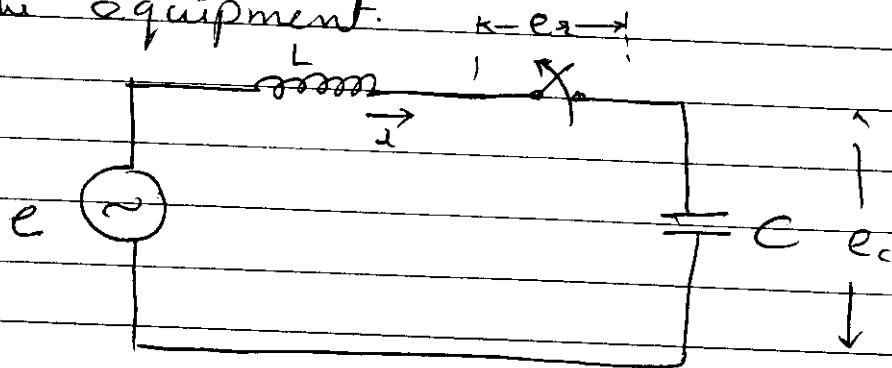 equipment.
er
L
i
e
C
ec